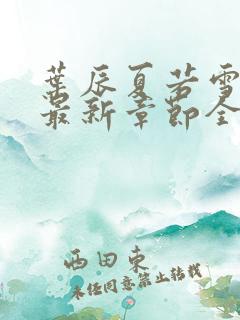 葉辰夏若雪
最新章節全
西田東
未经同意禁止转载